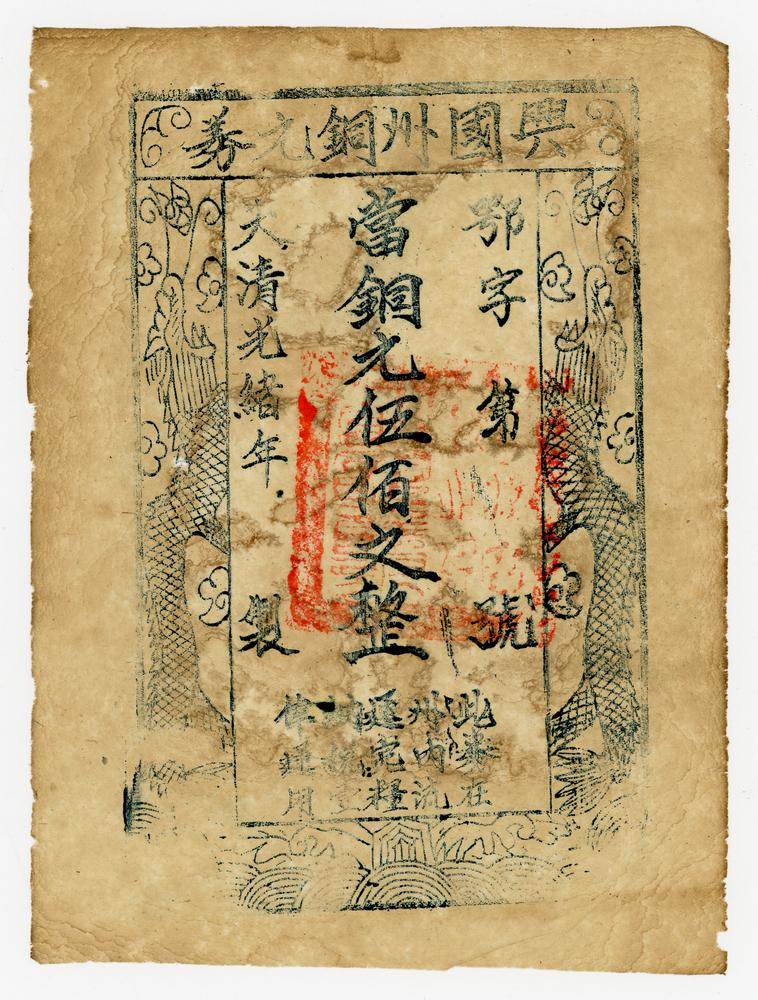 興國州銅元券
鄂字第號
當銅元伍佰之整
大清光緒年製
此票在
州內流
通完糧
稅
律通用